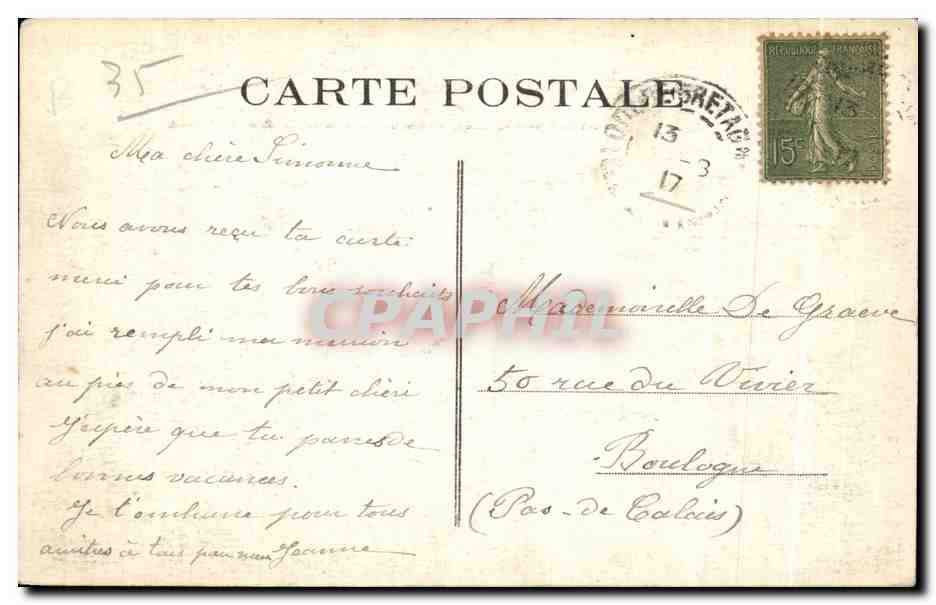 35
CARTE POSTALE
RÉPUBLIQUE FRANÇAISE
15c
BRETAGNE
13 -3
17
Ma chère Simonne
Nous avons reçu ta carte
merci pour tes bons souhaits
j'ai rempli ma mission
au près de mon petit chéri
J'espère que tu passes de
bonnes vacances.
Je t'embrasse pour tous
amitiés à tous Jeanne
Mademoiselle De Graeve
50 rue du Vivier
Boulogne
(Pas-de Calais)
CPAPHIL